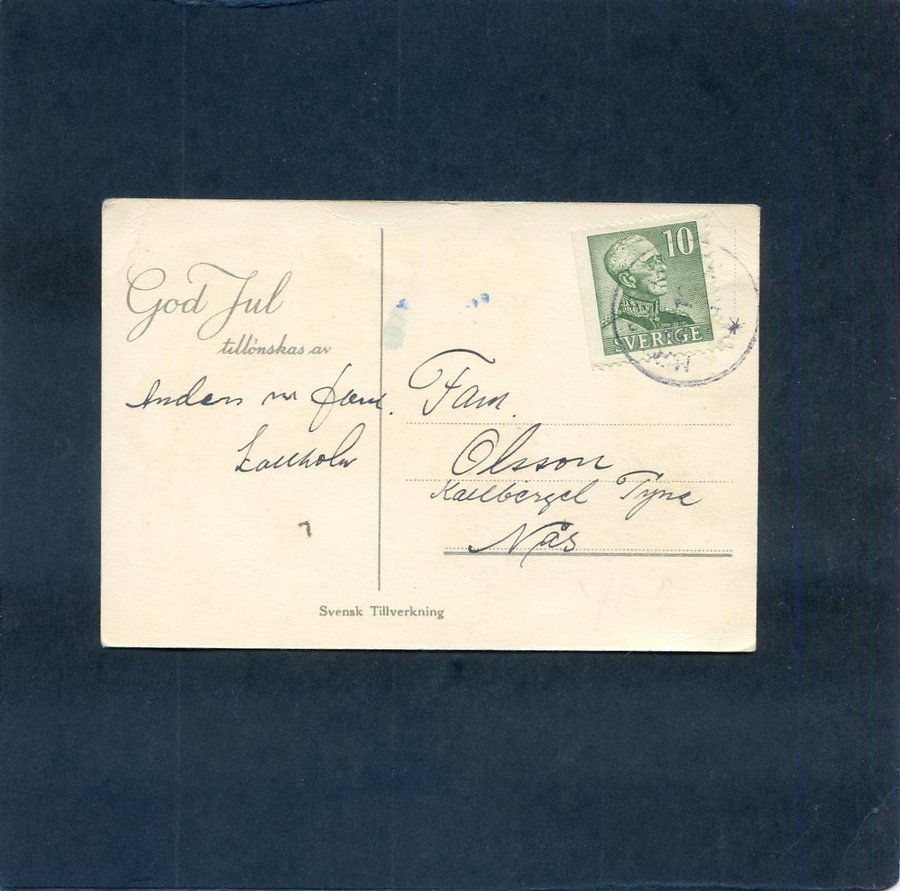 God Jul
tillönskas av
Anders m fam.
10
SVERIGE
Fam.
Olsson
Tyna
Nås
Svensk Tillverkning